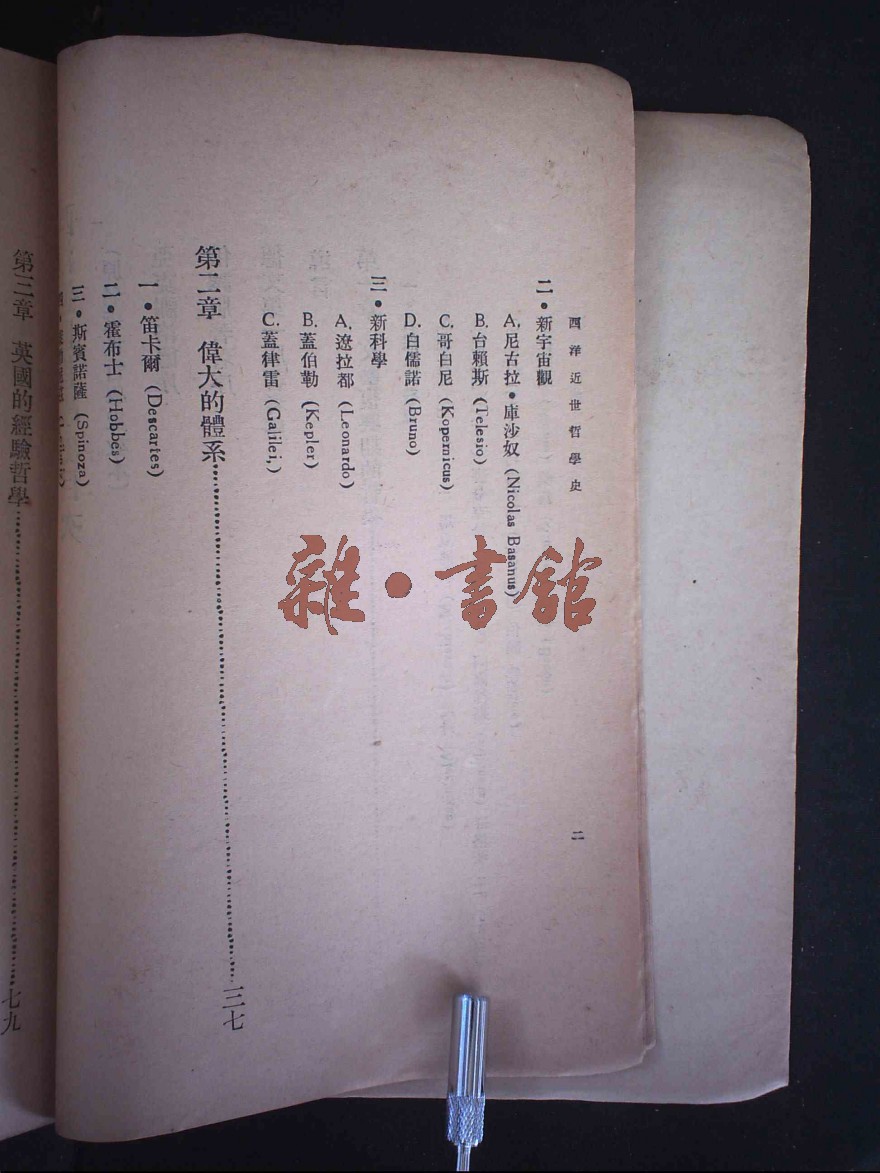 西洋近世哲學史 二
二・新宇宙觀
A,尼古拉・庫沙奴 (Nicolas Basanus)
B.台賴斯 (Telesio)
C.哥白尼 (Kopernicus)
D.白儒諾 (Bruno)
三・新科學
A.遼拉都 (Leonardo)
B.蓋伯勒 (Kepler)
C.蓋律雷 (Galilei,)
第二章 偉大的體系………三七
一・笛卡爾 (Descartes)
二・霍布士 (Hobbes)
三・斯賓諾薩 (Spinoza)
第三章 英國的經驗哲學………七九
雜・書館